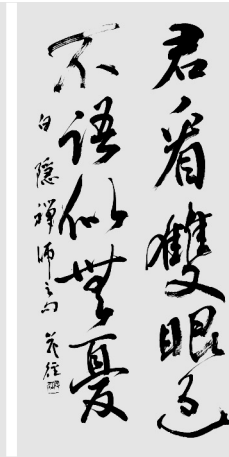 君看雙眼色
不語似無憂
白隱禪師之句